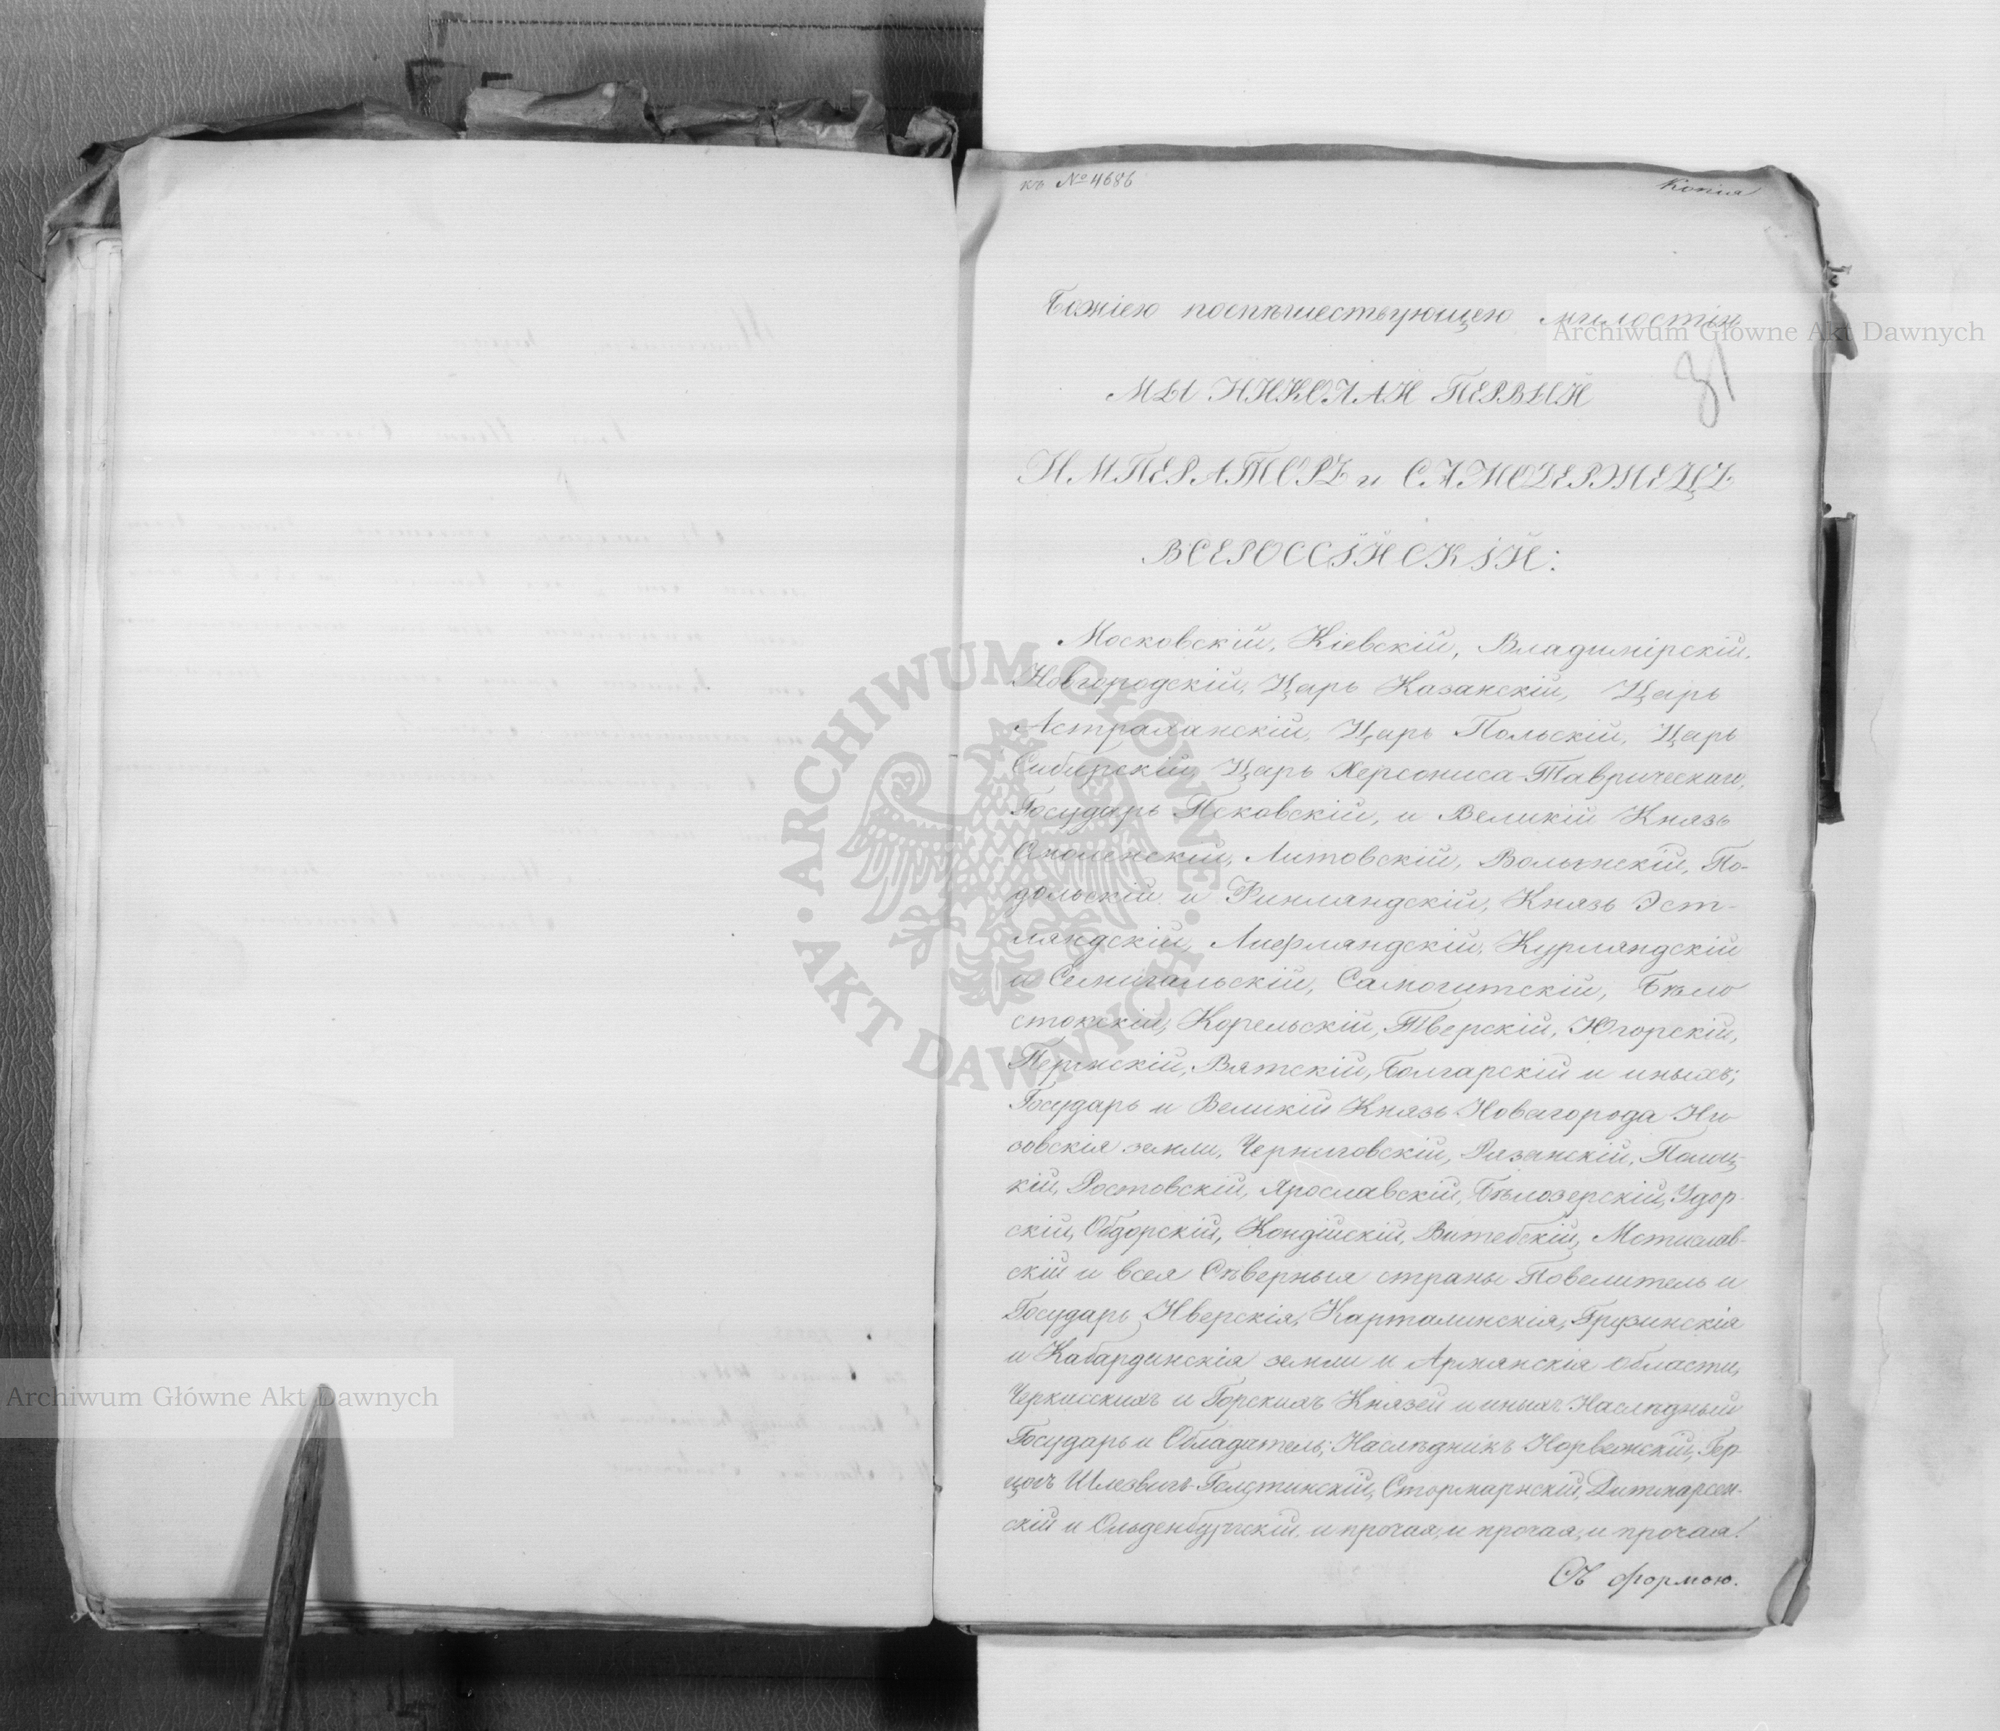 къ № 4686
Копія
Божіею поспѣшествующею милостію
Archiwum Główne Akt Dawnych
31
МЫ НИКОЛАЙ ПЕРВЫЙ
ИМПЕРАТОРЪ и САМОДЕРЖЕЦЪ
ВСЕРОССІЙСКІЙ:
Московскій, Кіевскій, Владимірскій,
Новгородскій, Царь Казанскій, Царь
Астраханскій, Царь Польскій, Царь
Сибирскій, Царь Херсониса-Таврическаго,
Государь Псковскій, и Великій Князь
Смоленскій, Литовскій, Волынскій, По-
дольскій и Финляндскій, Князь Эст-
ляндскій, Лифляндскій, Курляндскій
и Семигальскій, Самогитскій, Бѣло
стокскій, Корельскій, Тверскій, Югорскій,
Пермскій, Вятскій, Болгарскій и иныхъ;
Государь и Великій Князь Новагорода Ни-
зовскія земли, Черниговскій, Рязанскій, Полоц-
кій, Ростовскій, Ярославскій, Бѣлозерскій, Удор-
скій, Обдорскій, Кондійскій, Витебскій, Мстислав-
скій и всея Сѣверныя страны Повелитель и
Государь Иверскія, Карталинскія, Грузинскія
и Кабардинскія земли и Армянскія области,
Черкасскихъ и Горскихъ Князей и иныхъ Наслѣдный
Государь и Обладатель; Наслѣдникъ Норвежскій, Гер-
цогъ Шлезвигъ-Голстинскій, Стормарнскій, Дитмарсен-
скій и Ольденбургскій, и прочая, и прочая, и прочая!
Съ формою.
ARCHIWUM GŁÓWNE
AKT DAWNYCH
Archiwum Główne Akt Dawnych